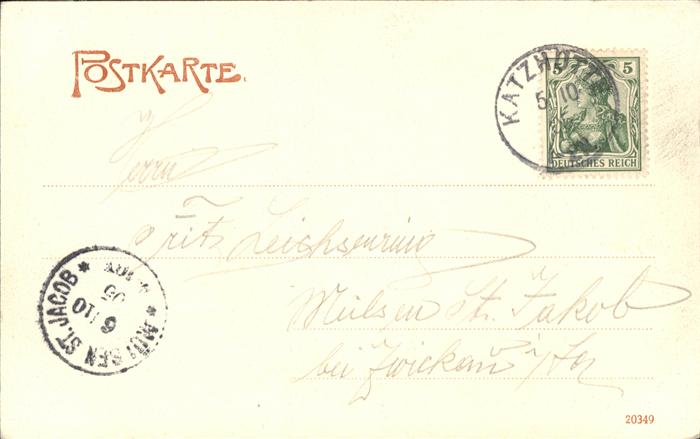 POSTKARTE.
KATZHÜTTE
5 10
5 5
DEUTSCHES REICH
Herrn
Fritz Leichsenring
Mülsen St. Jakob
bei Zwickau i/Sa
MÜLSEN ST. JACOB
6 10
05
20349